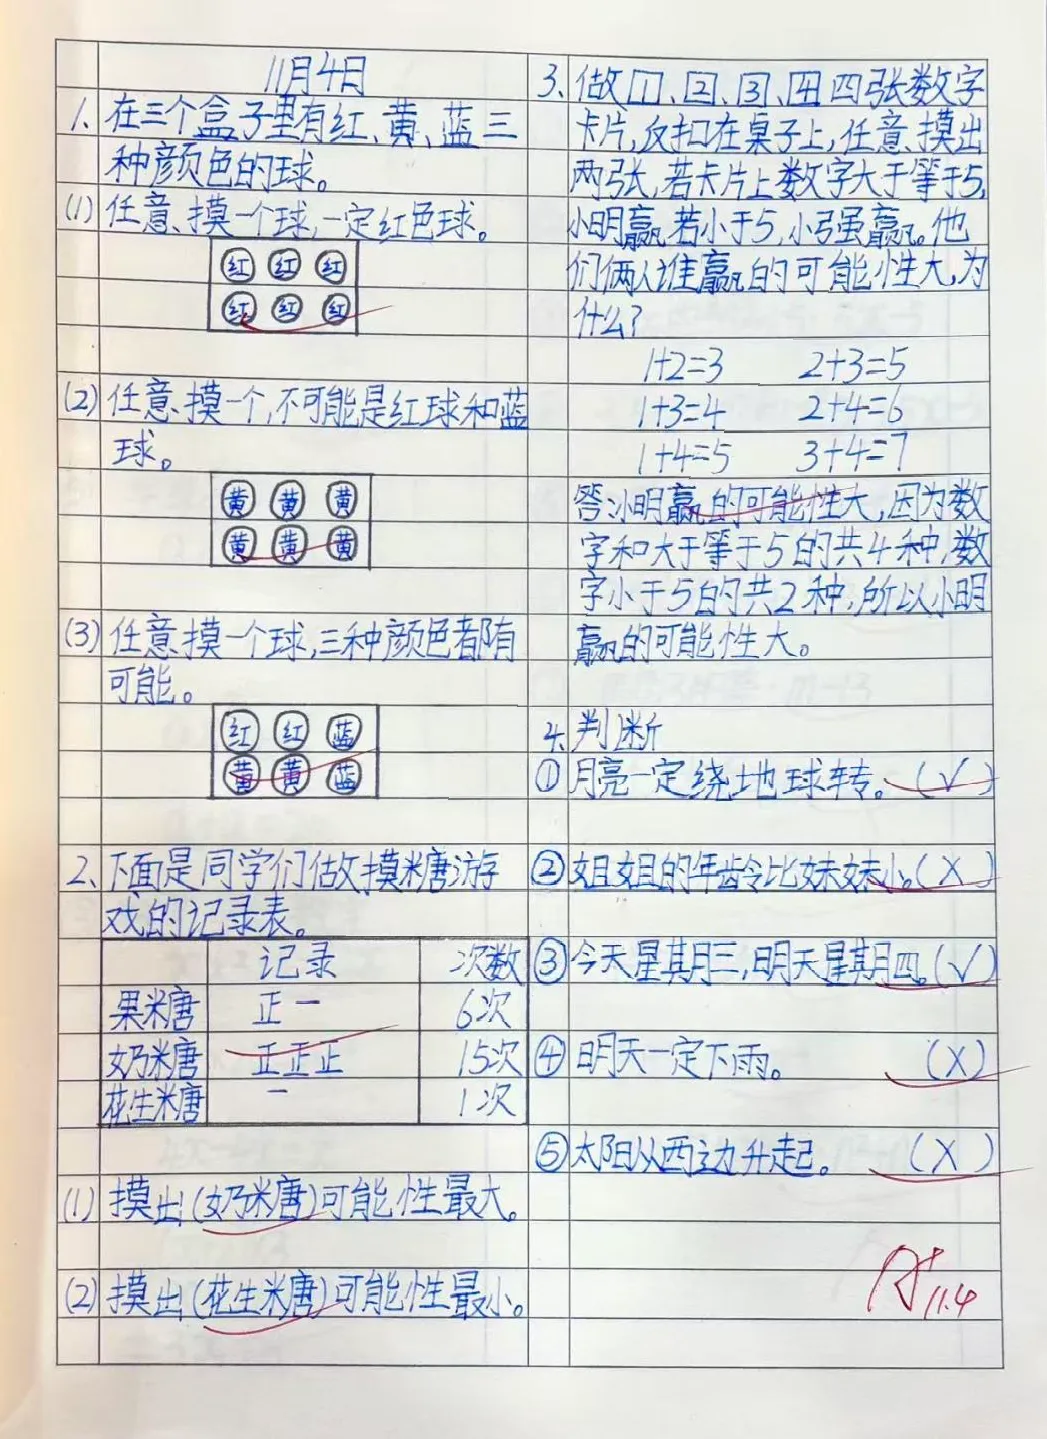 11月4日
1、在三个盒子里有红、黄、蓝三
种颜色的球。
(1) 任意摸一个球,一定红色球。
红 红 红
红 红 红
(2) 任意摸一个,不可能是红球和蓝
球。
黄 黄 黄
黄 黄 黄
(3) 任意摸一个球,三种颜色都有
可能。
红 红 蓝
黄 黄 蓝
2、下面是同学们做摸糖游
戏的记录表。
记录 次数
果糖 正一 6次
奶糖 正正正 15次
花生糖 一 1次
(1) 摸出(奶糖)可能性最大。
(2) 摸出(花生糖)可能性最小。
3、做1、2、3、4四张数字
卡片,反扣在桌子上,任意摸出
两张,若卡片上数字大于等于5,
小明赢,若小于5,小强赢。他
们俩人谁赢的可能性大,为
什么?
1+2=3 2+3=5
1+3=4 2+4=6
1+4=5 3+4=7
答:小明赢的可能性大,因为数
字和大于等于5的共4种,数
字小于5的共2种,所以小明
赢的可能性大。
4、判断
①月亮一定绕地球转。(√)
②姐姐的年龄比妹妹小。(X)
③今天星期三,明天星期四。(√)
④明天一定下雨。(X)
⑤太阳从西边升起。(X)
A+
11.4